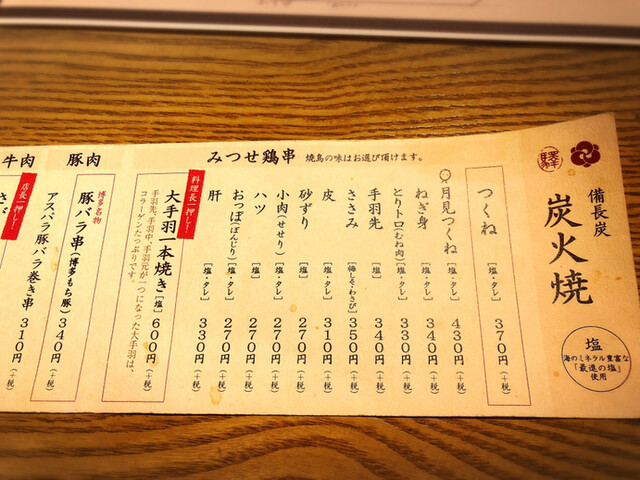 備長炭
炭火焼
塩
海のミネラル豊富な
「最進の塩」
使用
みつせ鶏串 焼鳥の味はお選び頂けます。
つくね [塩・タレ] 370円(+税)
月見つくね [塩・タレ] 430円(+税)
ねぎ身 [塩・タレ] 340円(+税)
とりトロ(むね肉) [塩・タレ] 330円(+税)
手羽先 [塩] 340円(+税)
ささみ [梅しそ・わさび] 350円(+税)
皮 [塩・タレ] 310円(+税)
砂ずり [塩] 270円(+税)
小肉(せせり) [塩・タレ] 270円(+税)
ハツ [塩] 270円(+税)
おっぽ(ぼんじり) [塩・タレ] 270円(+税)
肝 [塩・タレ] 330円(+税)
料理長一押し!
大手羽一本焼き [塩] 600円(+税)
手羽先、手羽中、手羽元が一つになった大手羽は、
コラーゲンたっぷりです。
豚肉
博多名物
豚バラ串(博多もち豚) 340円(+税)
アスパラ豚バラ巻き串 310円(+税)
牛肉
店長一押し!
さが